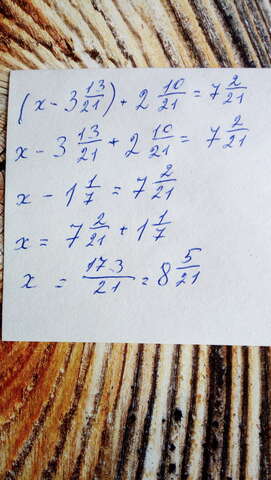 (x - 3 13/21) + 2 10/21 = 7 2/21
x - 3 13/21 + 2 10/21 = 7 2/21
x - 1 1/7 = 7 2/21
x = 7 2/21 + 1 1/7
x = 173/21 = 8 5/21